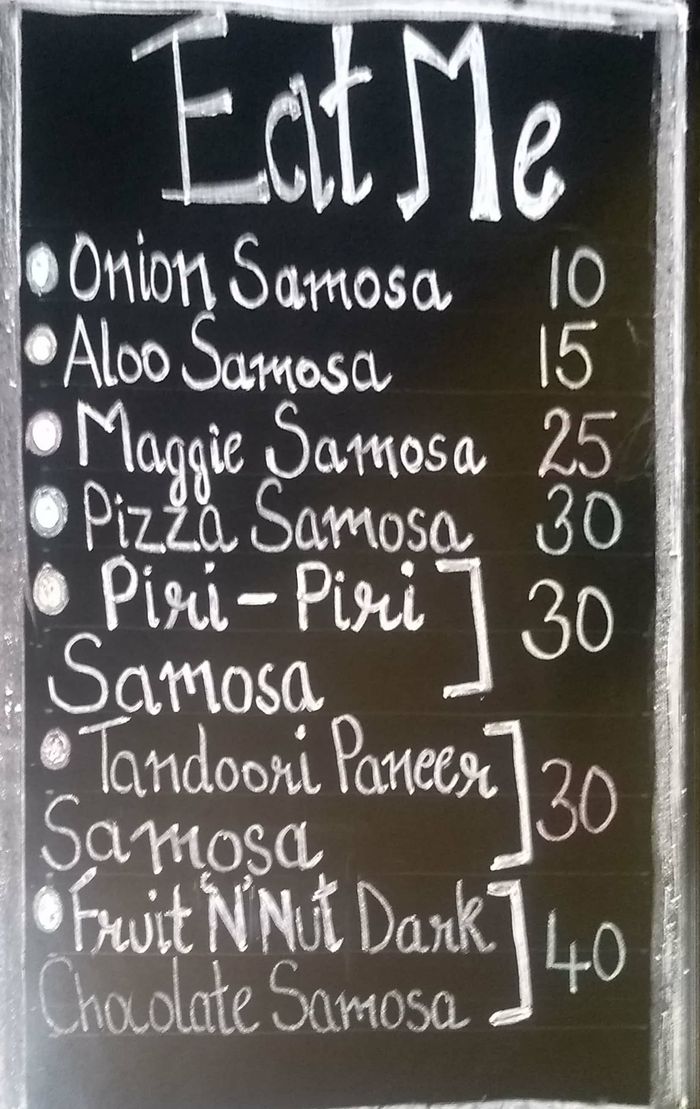 Eat Me
Onion Samosa 10
Aloo Samosa 15
Maggie Samosa 25
Pizza Samosa 30
Piri-Piri
Samosa ] 30
Tandoori Paneer
Samosa ] 30
Fruit 'N' Nut Dark
Chocolate Samosa ] 40